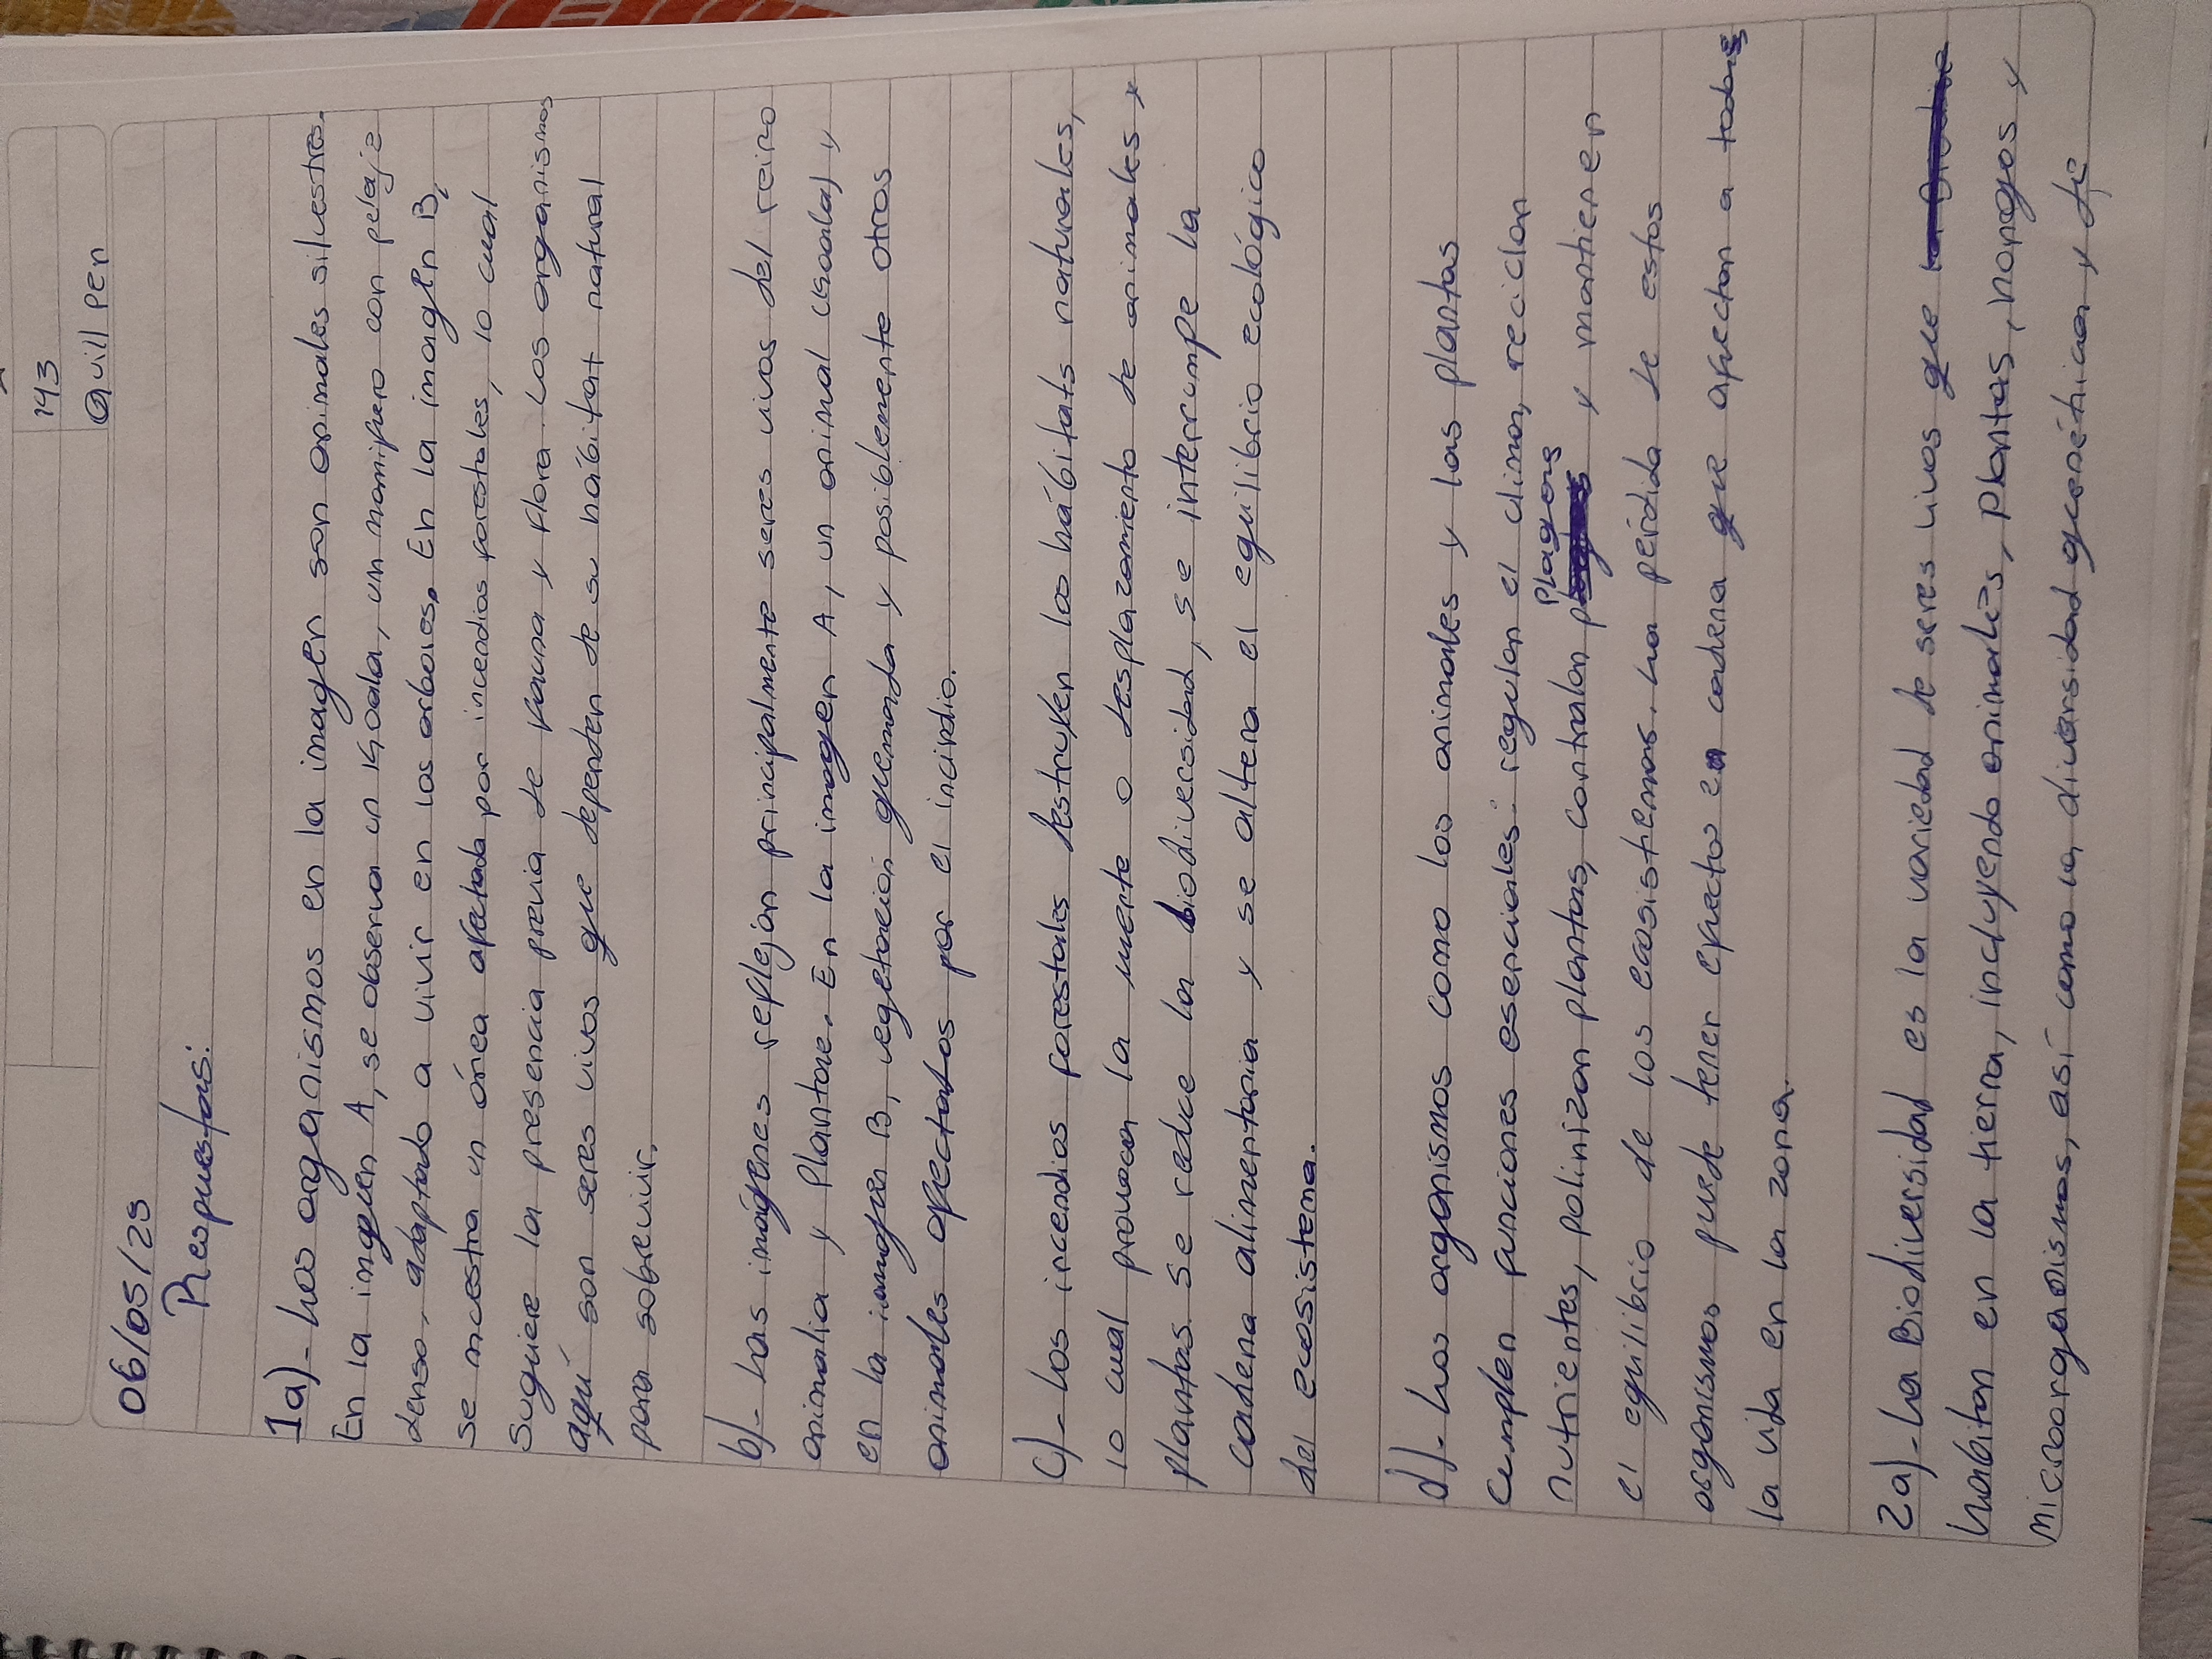 143
Quill Pen
06/05/25
Respuestas:
1a)- Los organismos en la imagen son animales silvestres.
En la imgen A, se observa un Koala, un mamifero con pelaje
denso, adaptado a vivir en los arboles. En la imagen B,
se muestra un área afectada por incendios forestales, lo cual
Sugiere la presencia previa de fauna y flora. Los organismos
aquí son seres vivos que dependen de su hábitat natural
para sobrevivir.
b)- Las imágenes reflejan principalmente seres vivos del reino
animalia y Plantae. En la imagen A, un animal (Koala) y
en la imagen B, vegetación quemada y posiblemente otros
animales afectados por el incirdio.
c)- Los incendios forestales destruyen los hábitats naturales,
lo cual provoca la muerte o desplazamiento de animales y
plantas se reduce la biodiversidad, se interrumpe la
cadena alimentaria y se altera el equilibrio ecológico
del ecosistema.
d)- Los organismos como los animales y las plantas
Cumplen funciones esenciales: regulan el clima, reciclan
nutrientes, polinizan plantas, controlan plagas y mantienen
el equilibrio de los ecosistemas. La pérdida de estos
organismos puede tener efecto en cadena que afectan a toda
la vida en la zona.
2a)- La Biodiversidad es la variedad de seres vivos que
habitan en la tierra, incluyendo animales, plantas, hongos y
microorganismos, así como la diversidad genética y de